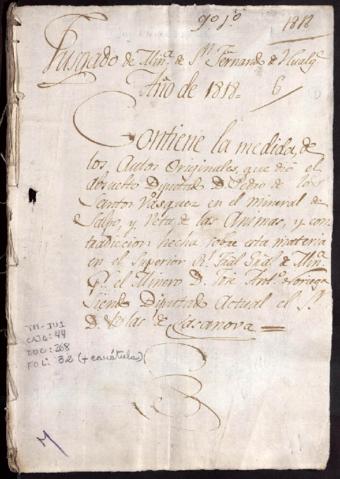 90 fo
1818
Juzgado de Min.a de S.n Fernando de Hualg.c
Año de 1818 = 6
Contiene la medida, de
los Autos Originales, que dió el
absuelto Diputado D. Pedro de los
Santos Vasquez en el Mineral de
Salpo, y Veta de las Animas, y con
tradiccion hecha sobre esta materia
en el Superior R.l Trál Gral de Min.a
P.r el Minero D. Jose Ant.o Noriega
Siendo Diputado Actual el S.r
D. Blas de Casanova =
TM-JU1
CAJA: 44
DOC: 268
FOL: 32 (+ carátula)